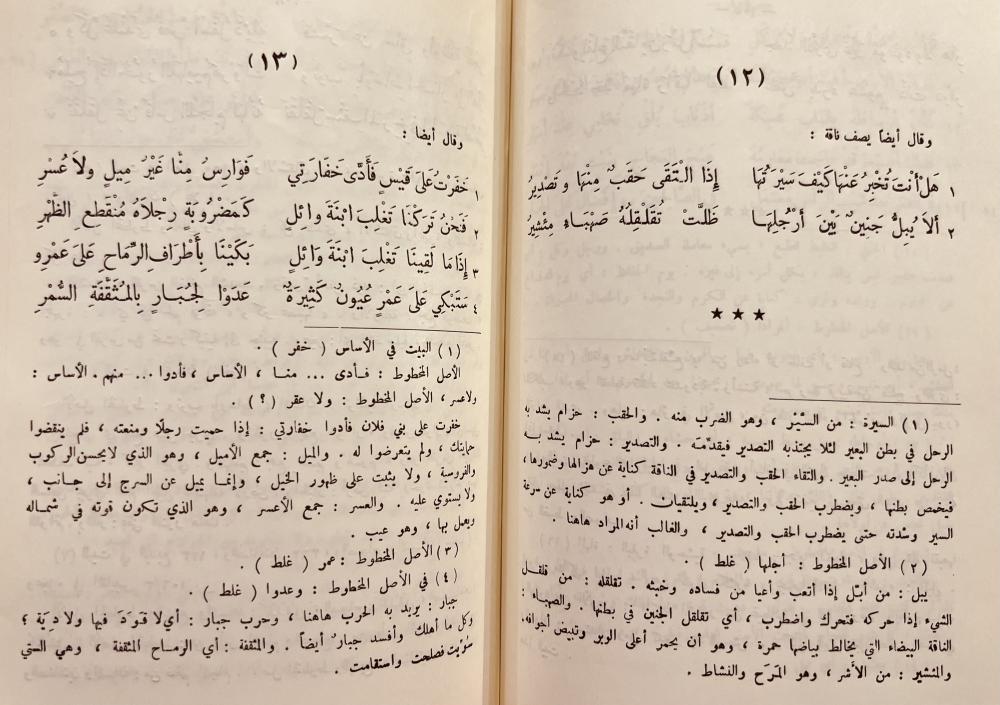 (١٢)
وقال أيضاً يصف ناقة :
١ هَلْ أنْتَ تُخْبِرُ عَنْهَا كَيْفَ سَيْرَتُهَا إذَا الْتَقَى حَقَبٌ مِنْهَا وَتَصْدِيرُ
٢ ألاَ يُبِلُّ جَنِينٌ بَيْنَ أرْجُلِهَا ظَلَّتْ تُقَلْقِلُهُ صَهْبَاءُ مِئْشِيرُ
★ ★ ★
(١) السيرة : من السَّيْر ، وهو الضرب منه . والحقب : حزام يشد به
الرحل في بطن البعير لئلا يجتذبه التصدير فيقدّمه . والتصدير : حزام يشد به
الرحل إلى صدر البعير . والتقاء الحقب والتصدير في الناقة كناية عن هزالها وضمورها ،
فيخمص بطنها ، ويضطرب الحقب والتصدير ، ويلتقيان . أو هو كناية عن سرعة
السير وشدته حتى يضطرب الحقب والتصدير ، والغالب أنه المراد هاهنا .
(٢) الأصل المخطوط : أجلها ( غلط ) .
يبل : من أبَلّ إذا أتعب وأعيا من فساده وخبثه . تقلقله : من قلقل
الشيء إذا حركه فتحرك واضطرب ، أي تقلقل الجنين في بطنها . والصهباء :
الناقة البيضاء التي يخالط بياضها حمرة ، وهو أن يحمر أعلى الوبر وتبيض أجوافه .
والمئشير : من الأَشر ، وهو المَرَح والنشاط .
(١٣)
وقال أيضا :
١ خَفَرْتُ عَلَى قَيْسٍ فَأَدَّى خَفَارَتِي فَوَارِسُ مِنَّا غَيْرُ مِيلٍ وَلاَ عُسْرِ
٢ فَنَحْنُ تَرَكْنَا تَغْلِبَ ابْنَةَ وَائِلٍ كَمَضْرُوبَةٍ رِجْلاَهُ مُنْقَطِعِ الظَّهْرِ
٣ إذَا مَا لَقِينَا تَغْلِبَ ابْنَةَ وَائِلٍ بَكَيْنَا بِأَطْرَافِ الرِّمَاحِ عَلَى عَمْرِو
٤ سَتَبْكِي عَلَى عَمْرٍ عُيُونٌ كَثِيرَةٌ عَدَوْا لِجُبَارٍ بِالْمُثَقَّفَةِ السُّمْرِ
(١) البيت في الأساس ( خفر ) .
الأصل المخطوط : فأدى ... منا ، الأساس ، فأدوا ... منهم . الأساس :
ولاعسر ، الأصل المخطوط : ولا عقر (؟) .
خفرت على بني فلان فأدوا خفارتي : إذا حميت رجلًا ومنعته ، فلم ينقضوا
حمايتك ، ولم يتعرضوا له . والميل : جمع الأميل ، وهو الذي لايحسن الركوب
والفروسية ، ولا يثبت على ظهور الخيل ، وإنما يميل عن السرج إلى جانب ،
ولا يستوي عليه . والعسر : جمع الأعسر ، وهو الذي تكون قوته في شماله
ويعمل بها ، وهو عيب .
(٣) الأصل المخطوط : عمر ( غلط ) .
(٤) في الأصل المخطوط : وعدوا ( غلط ) .
جبار : يريد به الحرب هاهنا ، وحرب جبار : أي لا قَوَدَ فيها ولا دِيَة ؛
وكل ما أهلك وأفسد جبارٌ أيضاً . والمثقفة : أي الرماح المثقفة ، وهي التي
سُوِّيت فصلحت واستقامت .